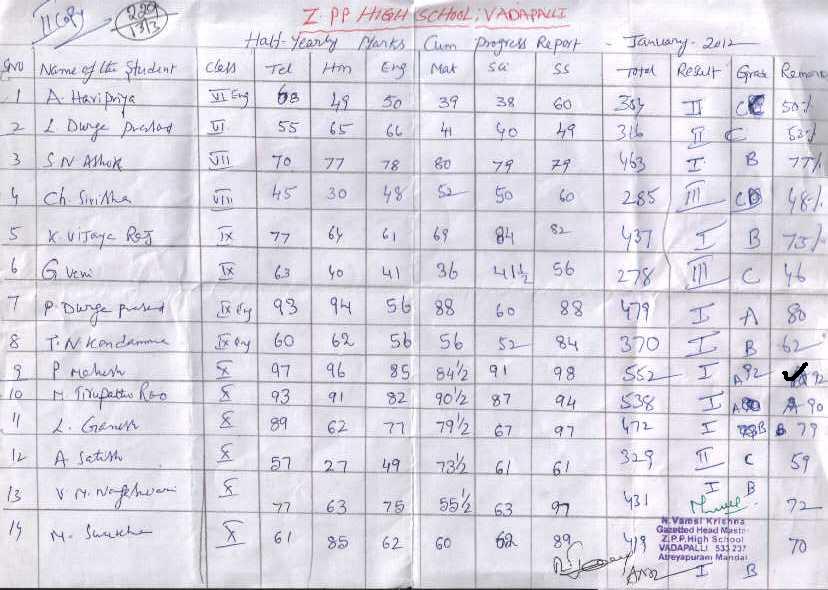 II Copy
229
13/3
Z.P.P HIGH SCHOOL; VADAPALLI
Half-Yearly Marks Cum Progress Report - January-2012
SNO Name of the Student Class Tel Hin Eng Mat Sci SS Total Result Grade Remark
1 A. Haripriya VI Eng 68 49 50 39 38 60 304 II C 50%
2 L. Durga prasad VI 55 65 66 41 40 49 316 II C 53%
3 S N Ashok VIII 70 77 78 80 79 79 463 I B 77%
4 Ch. Sirisha VIII 45 30 48 52 50 60 285 III C 48%
5 K. Vijaya Raj IX 77 64 61 69 84 82 437 I B 73%
6 G veni IX 63 40 41 36 41½ 56 278 III C 46
7 P. Durga prasad IX Eng 93 94 56 88 60 88 479 I A 80
8 T.N Kondamma IX Eng 60 62 56 56 52 84 370 I B 62
9 P Mahesh X 97 96 85 84½ 91 98 552 I A 92 92
10 M. Tirupatho Rao X 93 91 82 90½ 87 94 538 I A A-90
11 L. Ganesh X 89 62 77 79½ 67 97 472 I B B 79
12 A Satish X 57 27 49 73½ 61 61 329 II C 59
13 V. M. Nageshwari X 77 63 75 55½ 63 97 431 I B 72
14 M. X 61 85 62 60 62 89 419 I B 70
N.Vamsi Krishna
Gazetted Head Master
Z.P.P.High School
VADAPALLI 533 237
Atreyapuram Mandal